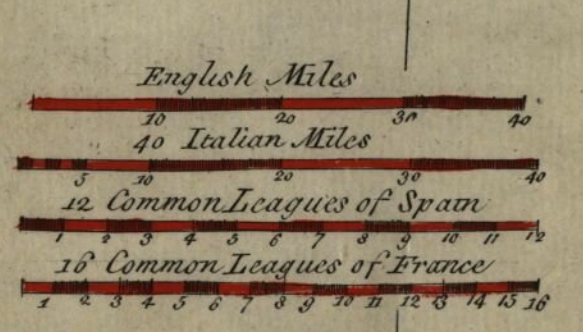 English Miles
10 20 30 40
40 Italian Miles
5 10 20 30 40
12 Common Leagues of Spain
1 2 3 4 5 6 7 8 9 10 11 12
16 Common Leagues of France
1 2 3 4 5 6 7 8 9 10 11 12 13 14 15 16